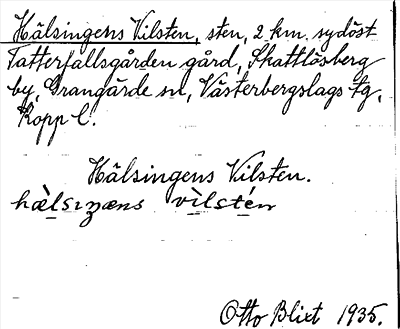 Hälsingens Vilsten, sten, 2 km. sydöst
Tatterfallsgården gård, Skattlösberg
by, Grangärde sn, Västerbergslags tg,
Kopp. l.
Hälsingens Vilsten.
hæ̀lsıŋæns vìlstén
Otto Blixt 1935.